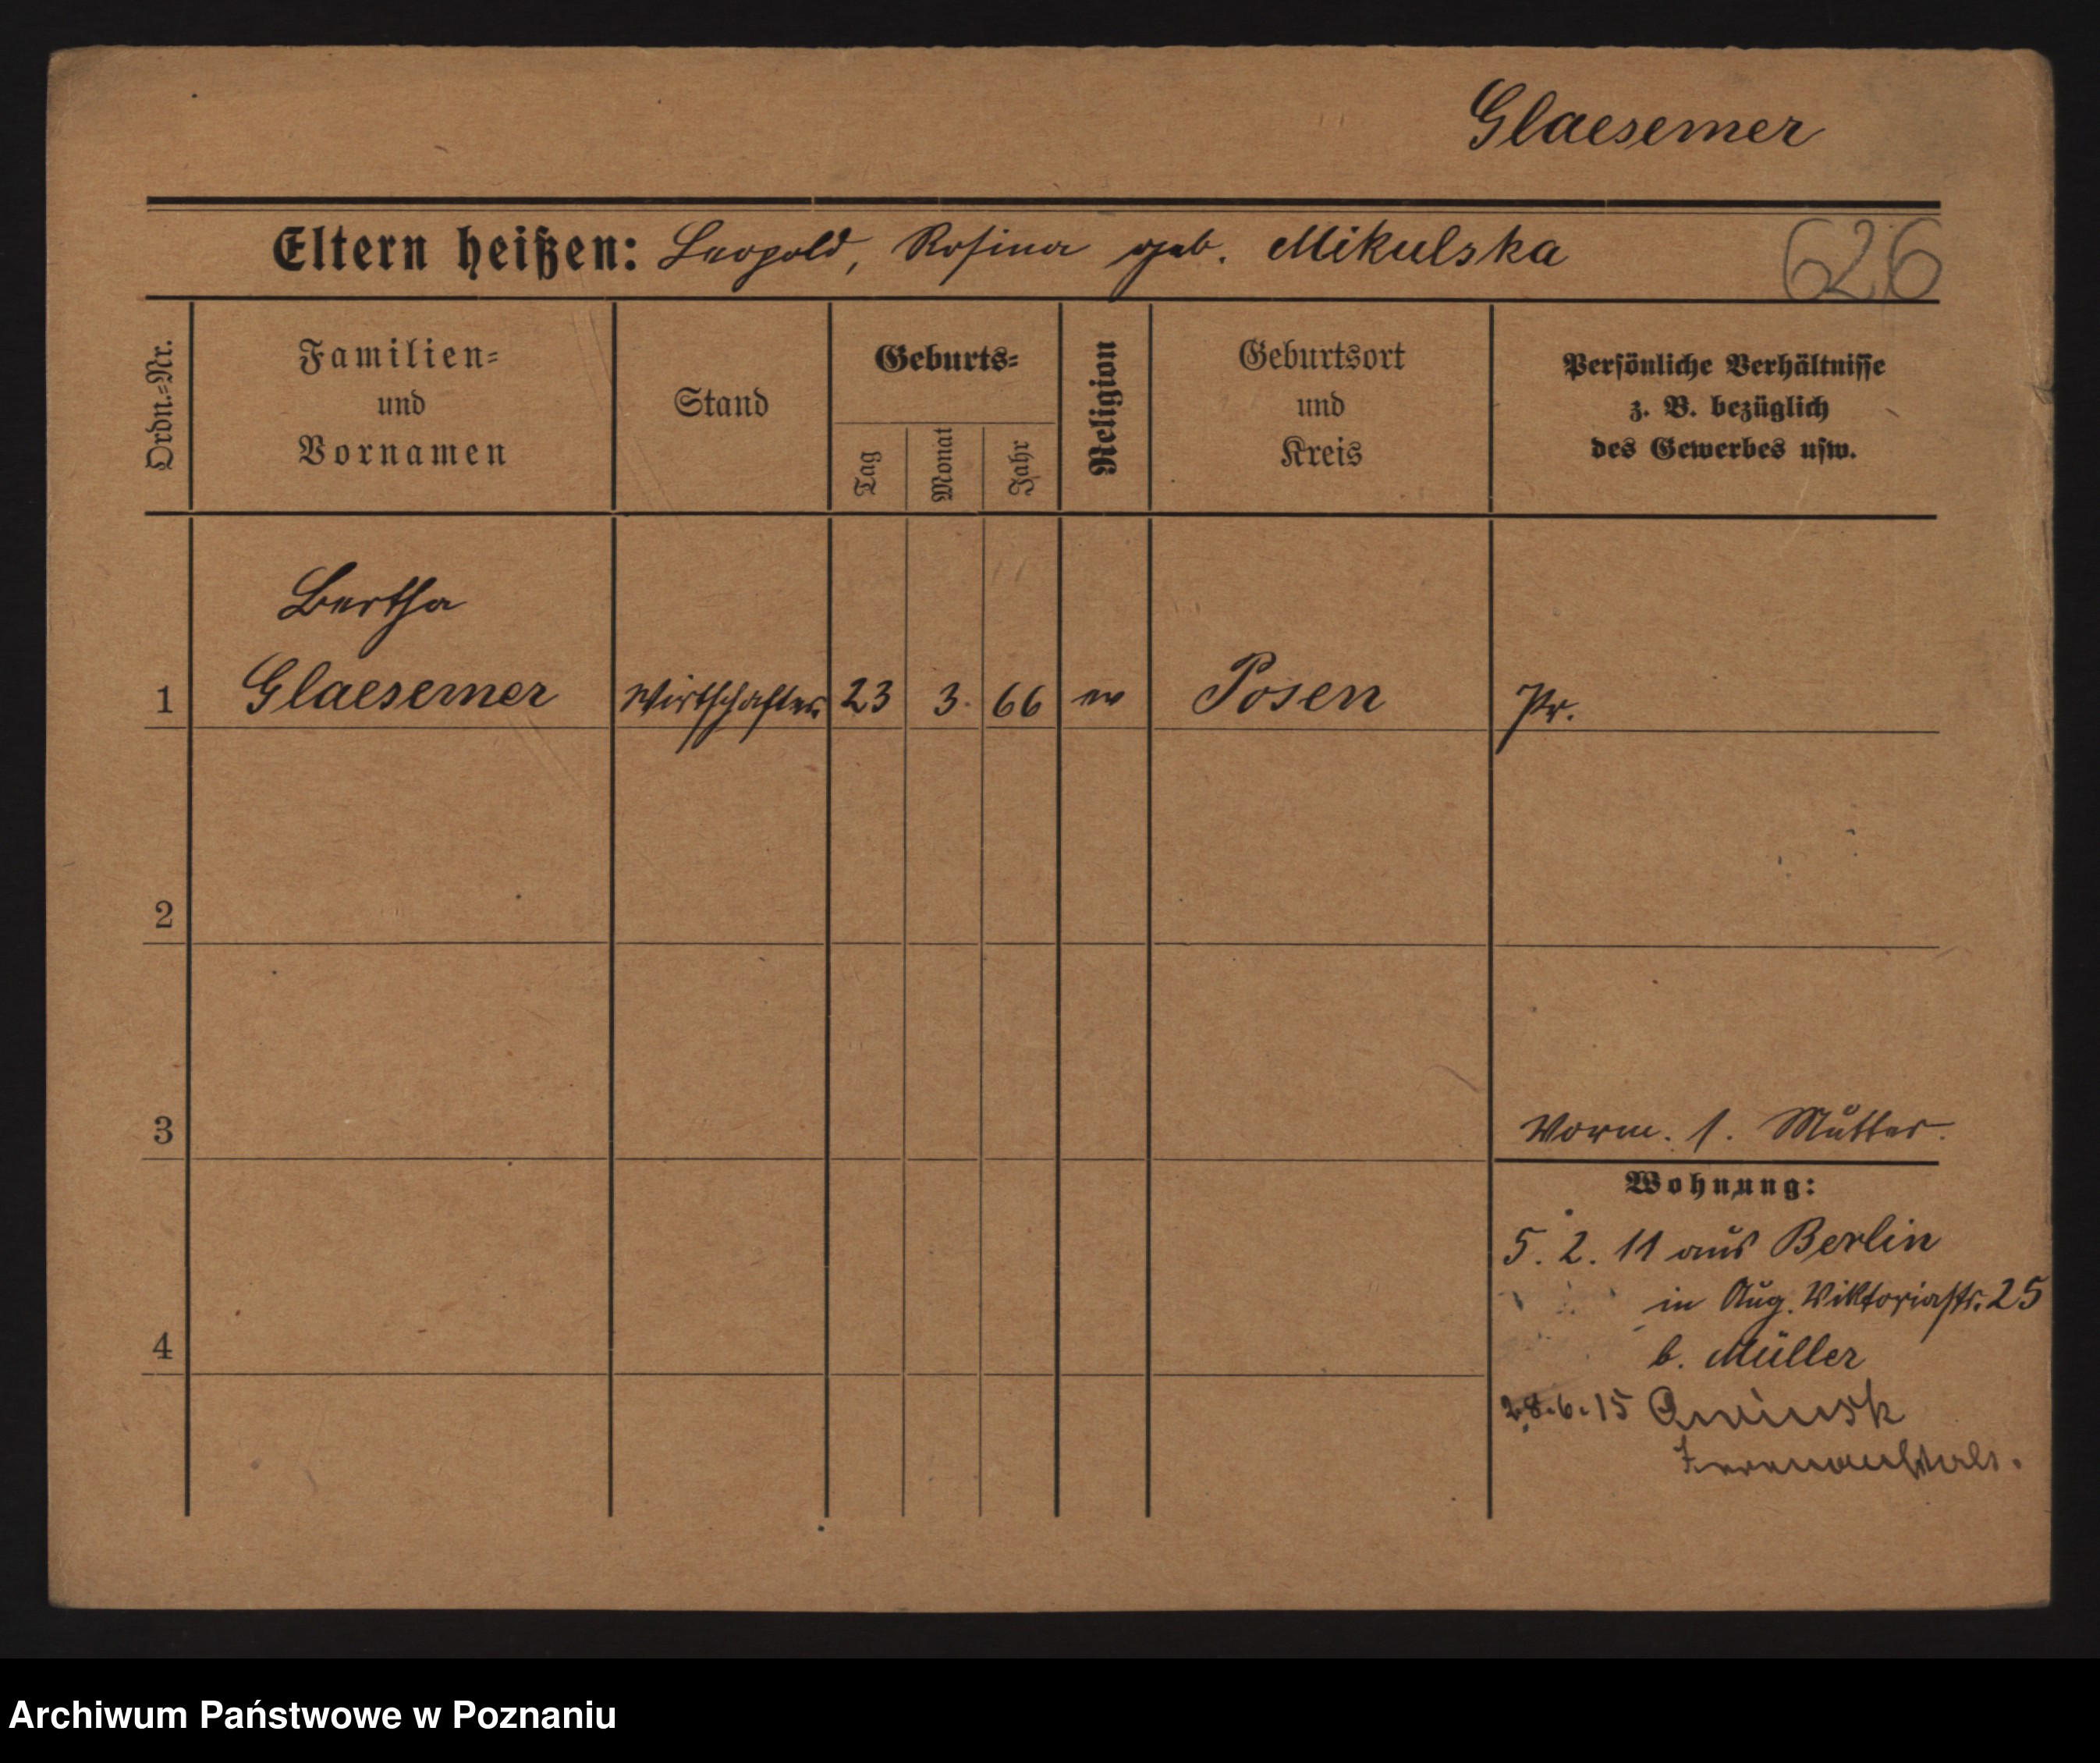 Glaesemer
Eltern heißen: Leopold, Rosina geb. Mikulska
626
Ordn.=Nr.
Familien=
und
Vornamen
Stand
Geburts=
Tag
Monat
Jahr
Religion
Geburtsort
und
Kreis
Persönliche Verhältnisse
z. B. bezüglich
des Gewerbes usw.
Bertha
1 Glaesemer Wirtschafter. 23 3. 66 ev Posen Pr.
2
3
Vorm. s. Mutter.
Wohnung:
5. 2. 11 aus Berlin
in Aug. Viktoriastr. 25
4
b. Müller
28.6.15 Owinsk
Irrenanstalt.
Archiwum Państwowe w Poznaniu